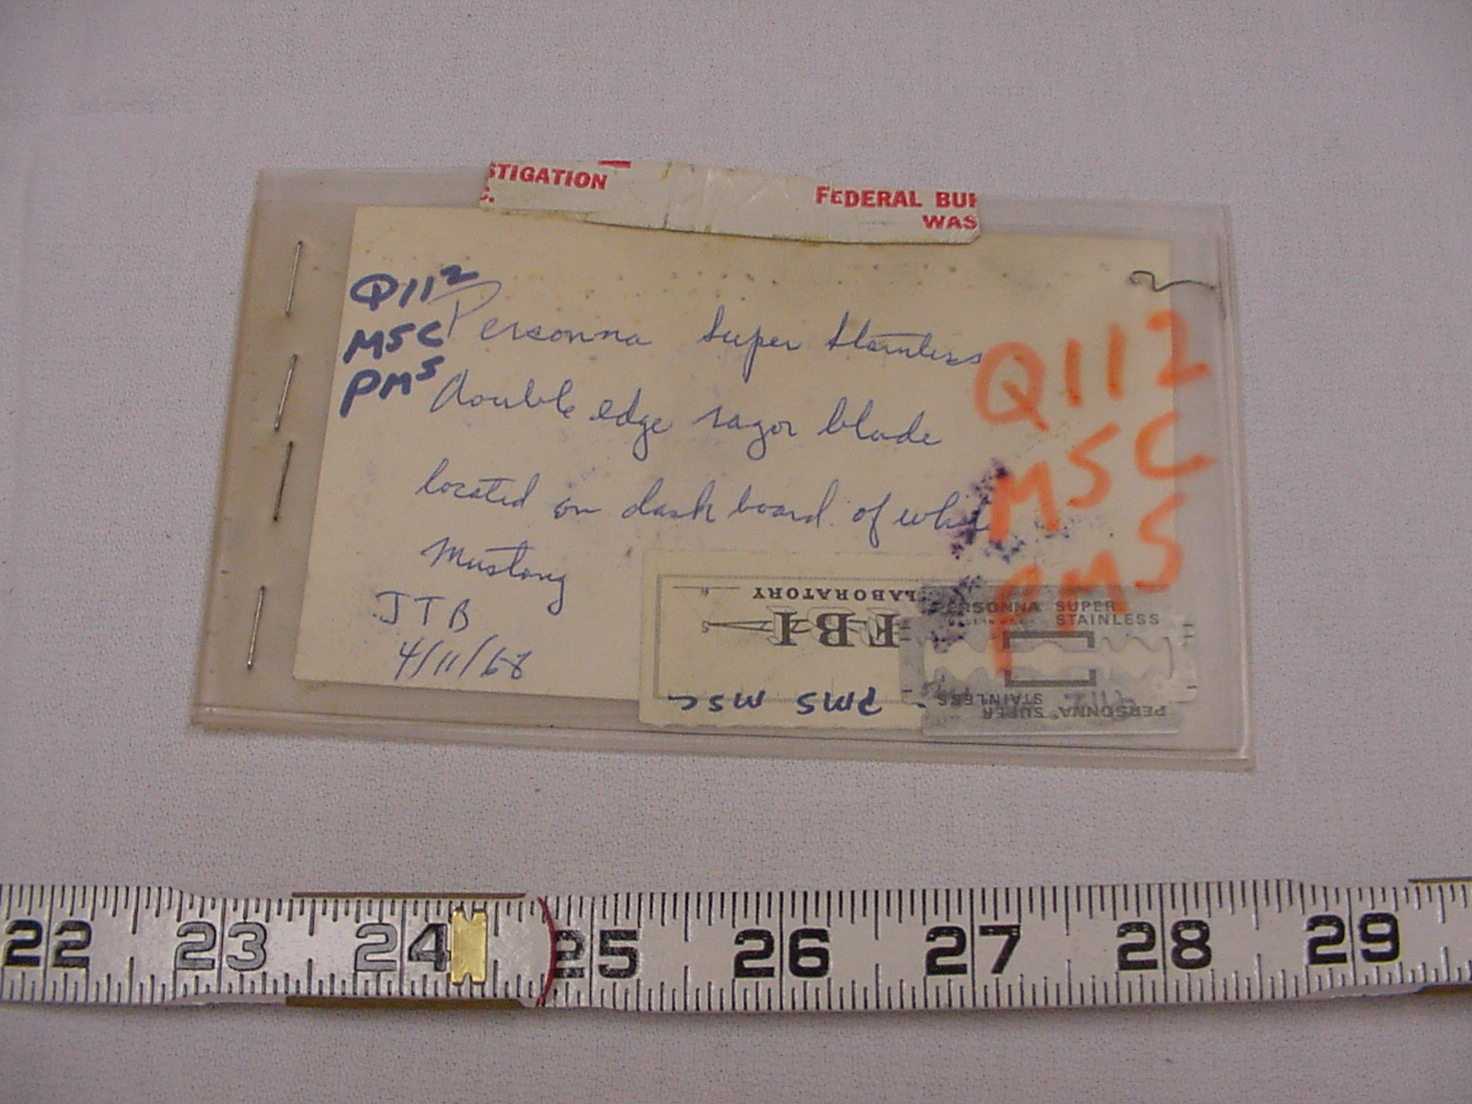 STIGATION
C.
FEDERAL BU
WAS
Q112
MSC
PMS
Personna Super Stainless
double edge razor blade
located on dash board of white
Mustang
JTB
4/11/68
Q112
MSC
PMS
FBI
LABORATORY
PMS MSC
PERSONNA SUPER
STAINLESS
PERSONNA SUPER
STAINLESS
22 23 24 25 26 27 28 29